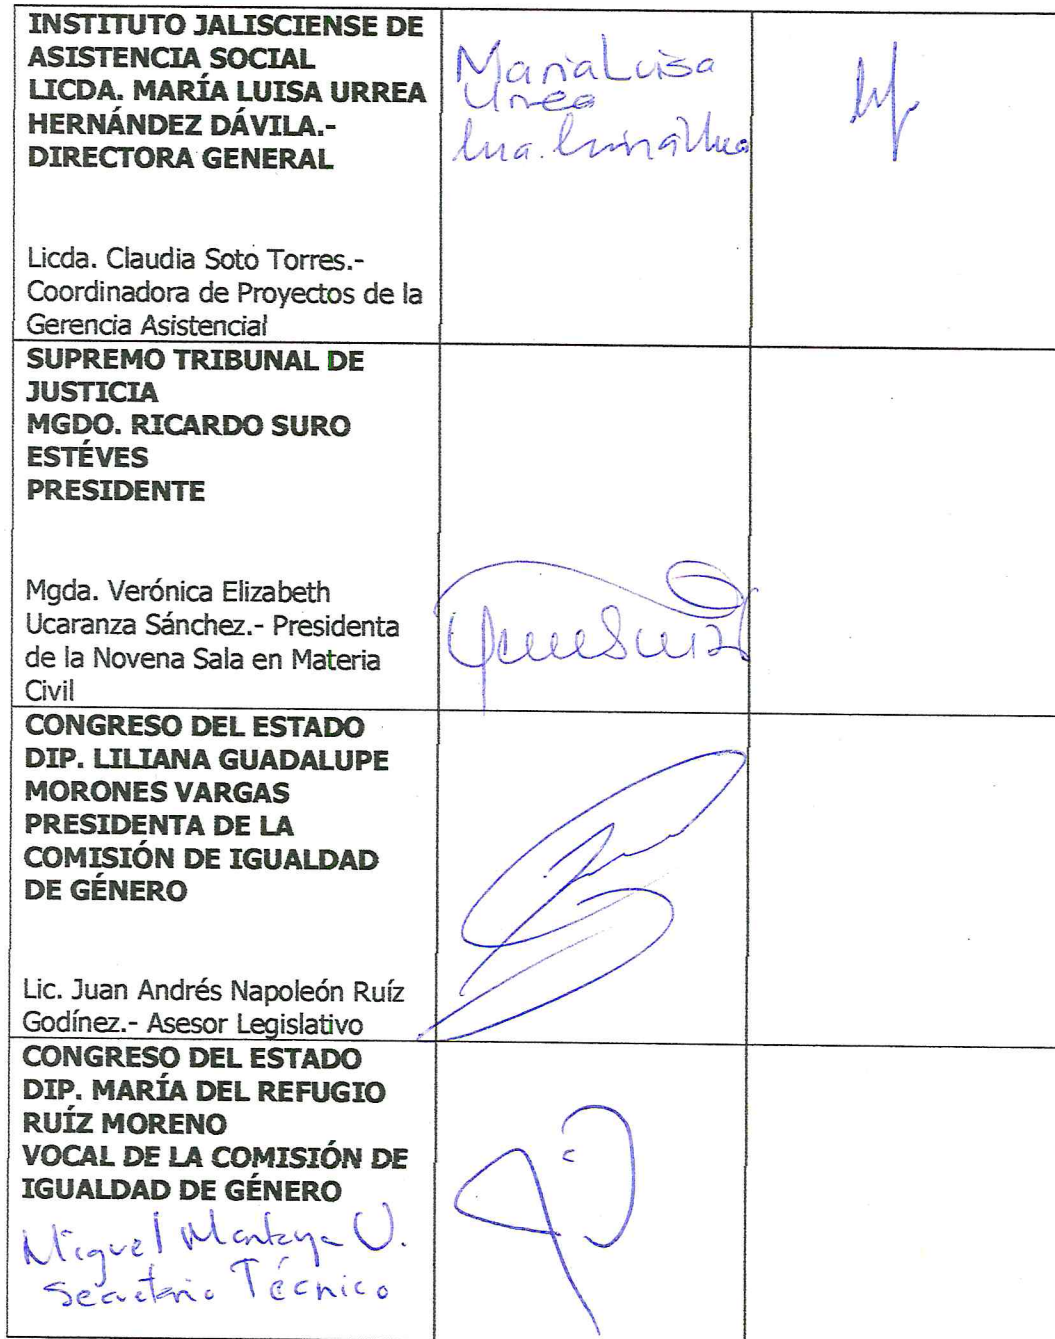 INSTITUTO JALISCIENSE DE
ASISTENCIA SOCIAL
LICDA. MARÍA LUISA URREA
HERNÁNDEZ DÁVILA.-
DIRECTORA GENERAL
Maria Luisa
Urrea
Licda. Claudia Soto Torres.-
Coordinadora de Proyectos de la
Gerencia Asistencial
SUPREMO TRIBUNAL DE
JUSTICIA
MGDO. RICARDO SURO
ESTÉVES
PRESIDENTE
Mgda. Verónica Elizabeth
Ucaranza Sánchez.- Presidenta
de la Novena Sala en Materia
Civil
CONGRESO DEL ESTADO
DIP. LILIANA GUADALUPE
MORONES VARGAS
PRESIDENTA DE LA
COMISIÓN DE IGUALDAD
DE GÉNERO
Lic. Juan Andrés Napoleón Ruíz
Godínez.- Asesor Legislativo
CONGRESO DEL ESTADO
DIP. MARÍA DEL REFUGIO
RUÍZ MORENO
VOCAL DE LA COMISIÓN DE
IGUALDAD DE GÉNERO
Miguel Montoya U.
Secretario Técnico